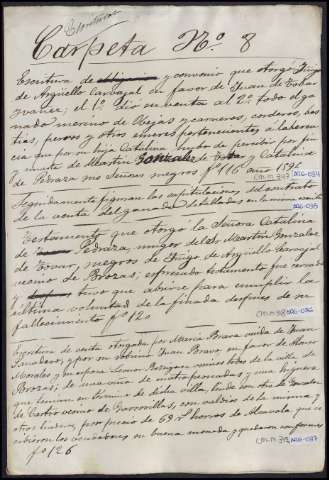 Escrituras
Carpeta Nº. 8
Escritura de y convenio que otorgó Iñigo
de Arguello Carbajal en favor de Juan de Tobar
Ivañez; el 1º dio en venta al 2º todo el ga-
nado merino de obejas y carneros, corderos, bos-
tias, perros y otros eneres pertenecientes a la heren-
cia que por su hija Catalina hubo de percibir por fin
y muerte de Martin Gonzalez de y Catalina
de Pedraza sus Señores suegros fº 116 año 1595
CM.M.347 006-034
Seguidamente figuran las capitulaciones del contrato
de la venta del ganado detallados en la misma
006-035
Testamento que otorgo la Señora Catalina
de Pedraza, muger de Dn Martin Gonzalez
de Tovar, suegros de Iñigo de Arguello Carvajal
vecino de Brozas, espresado testamento fue cerrado
y tuvo que abrirse para cumplir la
ultima voluntad de la finada despues de su
fallecimiento fº 120
CM.M.38 006-036
Escritura de venta otorgada por Maria Bravo viuda de Juan
Sanabria, y por su sobrino Juan Bravo, en favor de Alonso
Morales, y su esposa Leonor vecinos todos de la villa de
Brozas; de una viña de matas pensadas, y una higuera
que tenian en termino de dicha villa, linde con otra de Gonzalo
de Castro vecino de Garrovillas, con valdios de la misma y
otros linderos, por precio de 68 rs horros de Alcavala, que re-
cibieron los vendedores en buena moneda y quedaron conformes
fº 126
CM.M.313 006-037